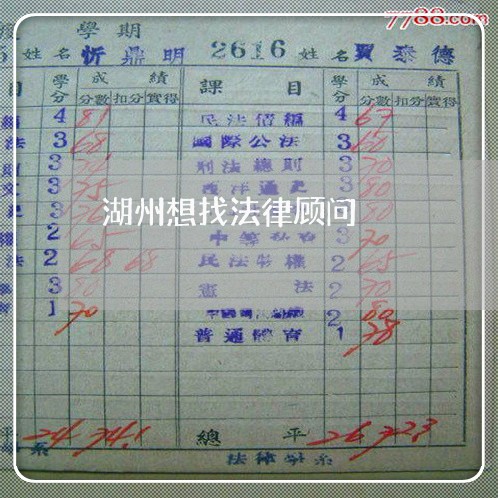 7788.com
學期
姓名 忻鼎明 2616 姓名 賈泰德
目 學分 成績 課目 學分 成績
分數 扣分 實得 分數 扣分 實得
4 81 民法債編 4 67
法 3 68 國際公法 3 60
3 刑法總則 3 70
3 75 西洋通史 3 80
3 80
湖州想找法律顧问
2 65 3 70
法 2 68 68 民法物權 2 65
3 80 憲法 2 70
1 70 2 80
普通體育 1 78
平 24 74.1 總平 26 72.3
系 法律學系